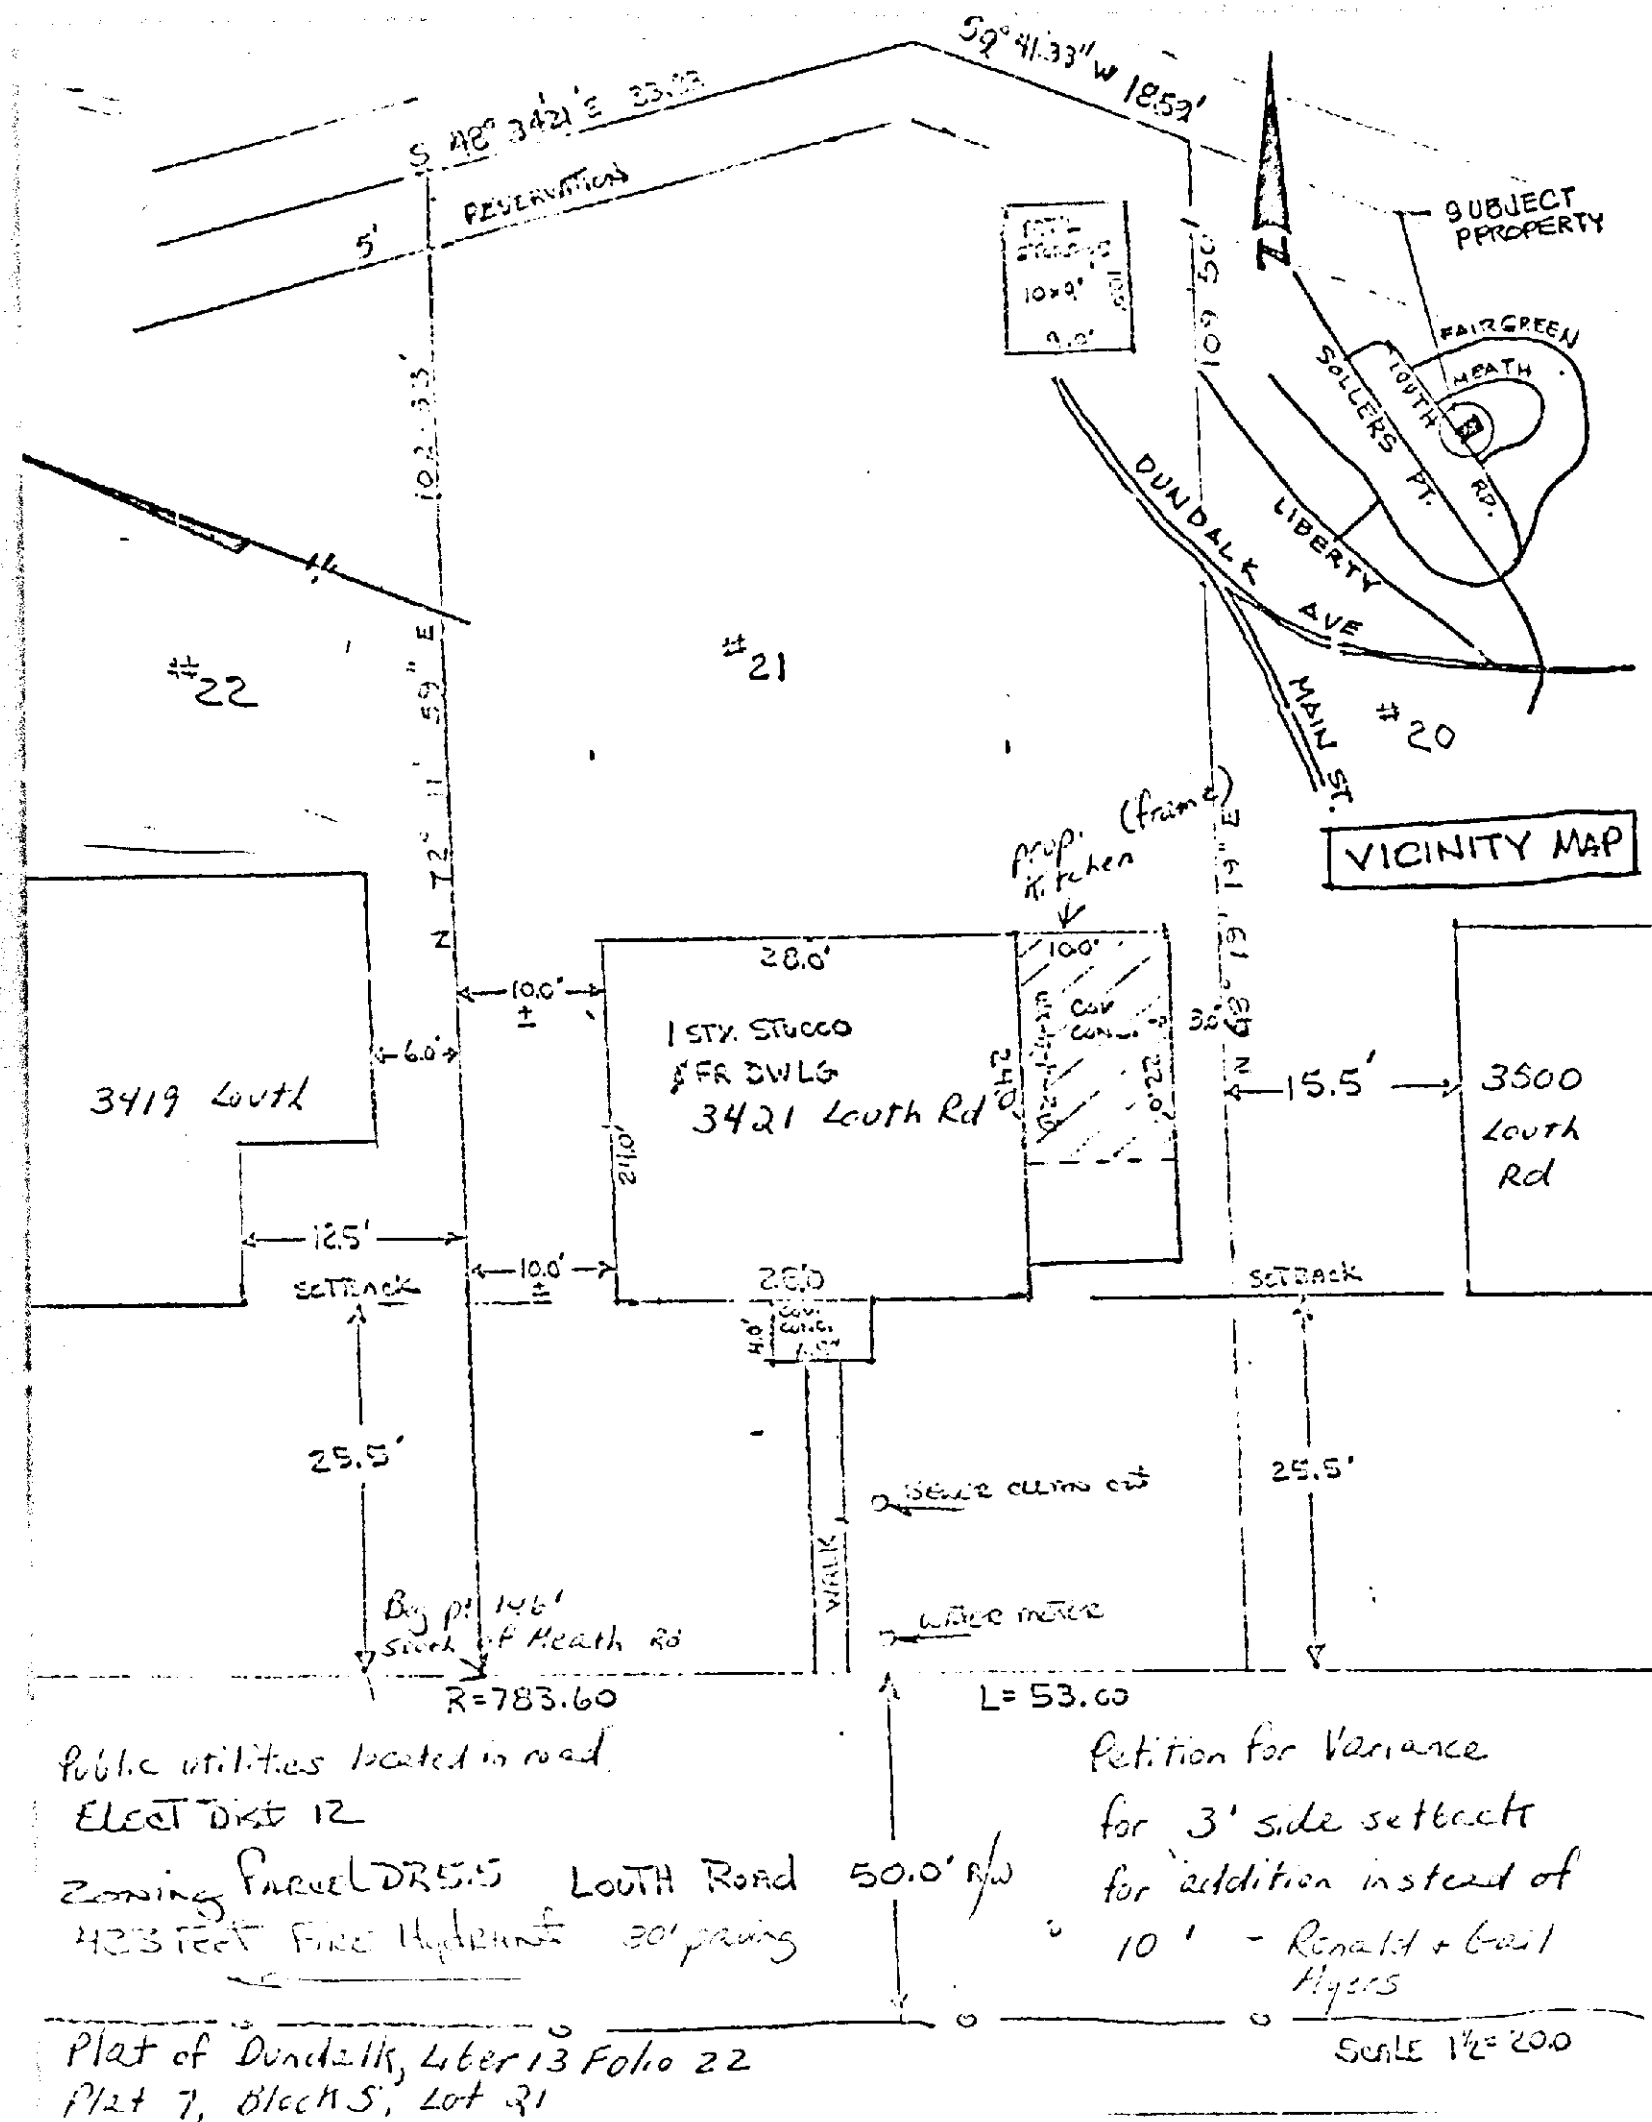 S 48° 34'21" E 33.93
59° 41.33" W 18.59'
RESERVATION
5'
10x9'
9.0'
109 50'
102.53'
SUBJECT
PPROPERTY
FAIRGREEN
MEATH
LOUTH
RD.
SOLLERS PT.
DUNDALK AVE
LIBERTY
MAIN ST.
VICINITY MAP
#22
#21
#20
N 72° 11' 59" E
N 69° 19' 19" E
prop. (frame)
Kitchen
28.0'
10.0'
10.0'
±
6.0'
1 STY. STUCCO
& FR DWLG
3421 Louth Rd
24.0'
24.0'
COV
CONC.
22.0'
3.0'
15.5'
3419 Louth
3500
Louth
Rd
12.5'
SETBACK
10.0'
±
28.0
SETBACK
COV.
CONC.
4.0'
25.5'
25.5'
WALK
SEWER CLEAN OUT
WATER METER
Beg pt 146'
south of Meath Rd
R=783.60
L= 53.00
Public utilities located in road
ELECT Dist 12
Zoning PARCEL DR5.5
LOUTH ROAD 50.0' R/W
423 FEET FIRE HYDRANT 30' paving
Petition for Variance
for 3' side setback
for addition instead of
10' - Ronald + Gail
Myers
SCALE 1½=20.0
Plat of Dundalk, Liber 13 Folio 22
Plat 7, Block 5, Lot 21